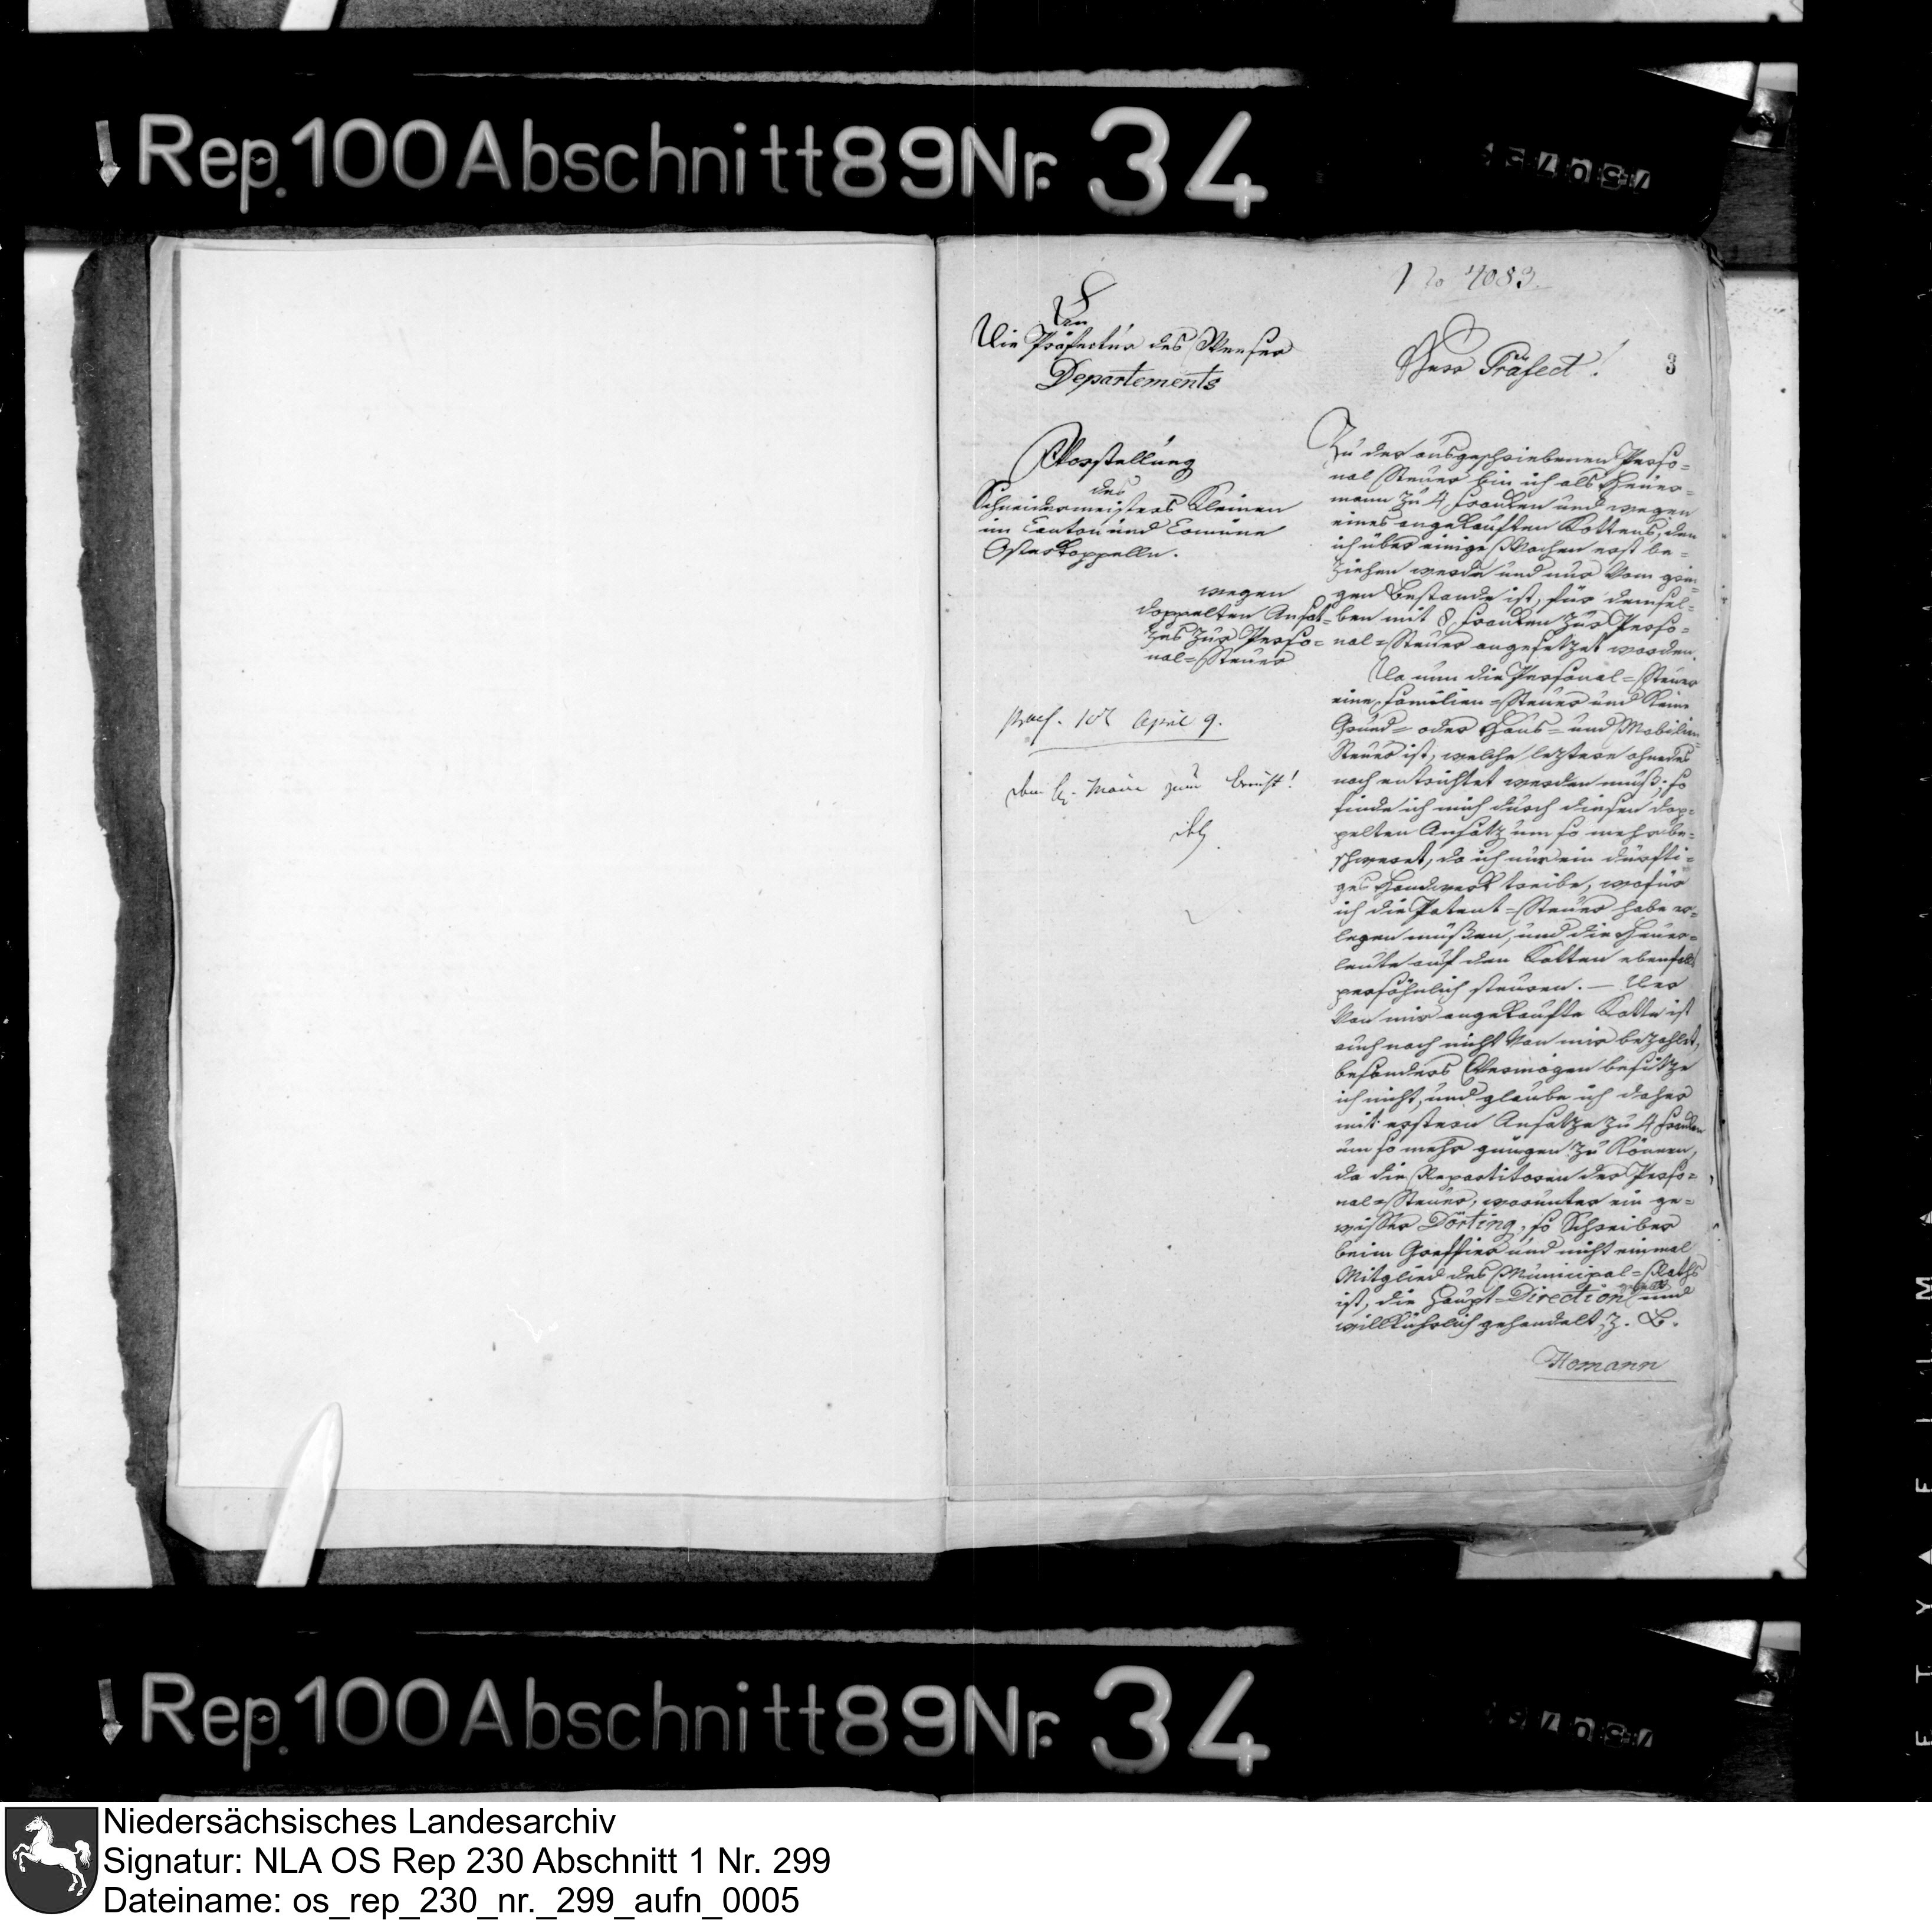 Rep. 100 Abschnitt 89 Nr. 34
No 4083.
3
An
Die Präfectur des Weeser
Departements
Vorstellung
des
Schneidermeisters Kleinen
im Canton und Comune
Osterkappelln.
wegen
doppelten Ansat-
zes zur Perso-
nal-Steuer
praes. 10t April 9.
dem H. Maire zum Bericht!
Herr Präfect!
Zu der ausgeschriebenen Perso-
nal Steuer bin ich als Heuer-
mann zu 4 Franken und wegen
eines angekauften Kottens, den
ich über einige Wochen erst be-
ziehen werde und nur vom gerin-
gen Bestande ist, für demsel-
ben mit 8 Franken zur Perso-
nal-Steuer angesetzet worden.
Da nun die Personal-Steuer
eine Familien-Steuer und keine
Grund- oder Haus- und Mobilien-
Steuer ist, welche leztere ohnedes
noch entrichtet werden muß; so
finde ich mich durch diesen dop-
pelten Ansatz um so mehr be-
schweret, da ich nur ein dürfti-
ges Handwerk treibe, wofür
ich die Patent-Steuer habe er-
legen müßen, und die Heuer-
leute auf den Kotten ebenfalls
persöhnlich steuren. — Der
von mir angekaufte Kotte ist
auch noch nicht von mir bezahlet,
besonders Vermögen besitze
ich nicht, und glaube ich daher
mit erstern Ansatze zu 4 Franken
um so mehr gnügen zu können,
da die Repartitoren der Perso-
nal-Steuer, worunter ein ge-
wisser Dörting, so Schreiber
beim Greffier und nicht einmal
Mitglied des Municipal-Raths
ist, die Haupt-Direction und
willkührlich gehandelt, z. B.
Homann
Rep. 100 Abschnitt 89 Nr. 34
Niedersächsisches Landesarchiv
Signatur: NLA OS Rep 230 Abschnitt 1 Nr. 299
Dateiname: os_rep_230_nr._299_aufn_0005